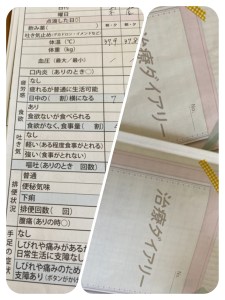 曜日
点滴した日
飲み薬
吐き気止め
体温 (℃) 37.9 37.8
体重 (kg)
血圧 (最大／最小) ／
口内炎 (ありのとき○)
疲労感
なし
疲れるが普通に生活可能
日中の( 割)横になる 7
食欲
あり
食欲ないが食べられる
食欲がなく、食事量( 割)
吐き気
なし
軽い(ある程度食事がとれる)
強い(食事がとれない)
嘔吐(ありのとき 回数)
排便状況
普通
便秘気味
下痢
排便回数( 回)
腹痛(ありの時○)
手足の症状
なし
しびれや痛みがあるが
日常生活に支障なし
しびれや痛みのため
支障あり(ボタンがかけ
治療ダイアリー
治療ダイアリー